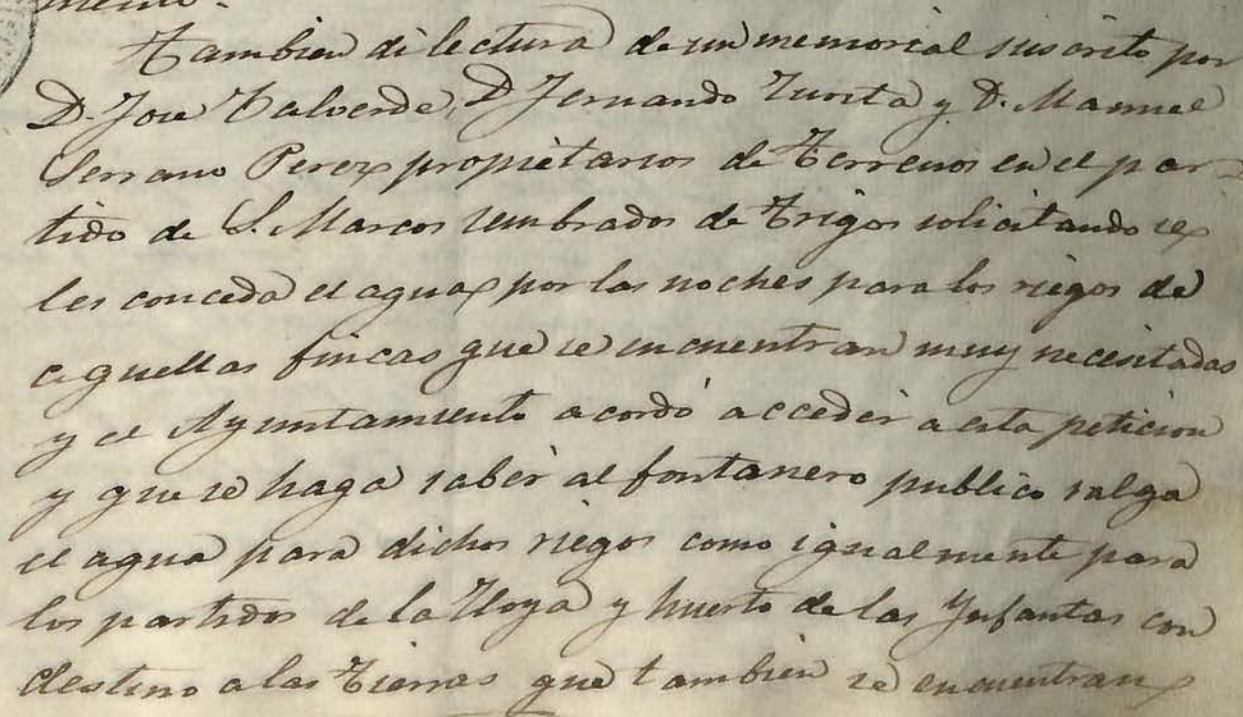 Tambien di lectura de un memorial suscrito por
D. Jose Valverde, D Fernando Zurita y D. Manuel
Serrano Perez propietarios de terrenos en el par-
tido de S. Marcos sembrados de trigos solicitando se
les conceda el agua por las noches para los riegos de
aquellas fincas que se encuentran muy necesitadas
y el Ayuntamiento acordó acceder a esta peticion
y que se haga saber al fontanero publico salga
el agua para dichos riegos como igualmente para
los partidos de la Hoya y huerto de las Infantas con
destino a las tierras que tambien se encuentran